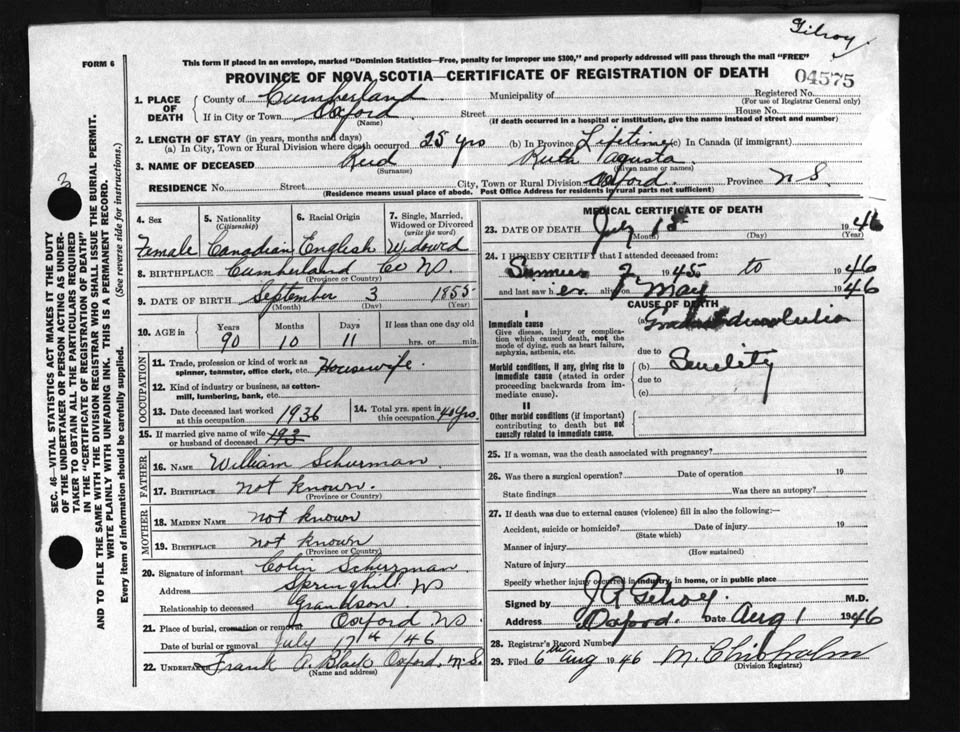 Gilroy
FORM 6
This form if placed in an envelope, marked "Dominion Statistics—Free, penalty for improper use $300," and properly addressed will pass through the mail "FREE"
PROVINCE OF NOVA SCOTIA—CERTIFICATE OF REGISTRATION OF DEATH
04575
1. PLACE OF DEATH
County of Cumberland Municipality of Registered No.
(For use of Registrar General only)
If in City or Town Oxford Street House No.
(Name) (If death occurred in a hospital or institution, give the name instead of street and number)
2. LENGTH OF STAY (in years, months and days)
(a) In City, Town or Rural Division where death occurred 25 yrs (b) In Province Lifetime (c) In Canada (if immigrant)
3. NAME OF DECEASED Reid Ruth Agusta
(Surname) (Given name or names)
RESIDENCE No. Street City, Town or Rural Division Oxford. Province N S.
(Residence means usual place of abode. Post Office Address for residents in rural parts not sufficient)
4. Sex 5. Nationality (Citizenship) 6. Racial Origin 7. Single, Married, Widowed or Divorced (write the word)
Female Canadian English Widowed
8. BIRTHPLACE Cumberland Co NS.
(Province or Country)
9. DATE OF BIRTH September 3 1855
(Month) (Day) (Year)
10. AGE in Years Months Days If less than one day old
90 10 11 hrs. or min.
OCCUPATION
11. Trade, profession or kind of work as spinner, teamster, office clerk, etc. Housewife.
12. Kind of industry or business, as cotton-mill, lumbering, bank, etc.
13. Date deceased last worked at this occupation 1936 14. Total yrs. spent in this occupation 40 yrs.
15. If married give name of wife or husband of deceased 193
FATHER
16. NAME William Schurman.
17. BIRTHPLACE not known.
(Province or Country)
MOTHER
18. MAIDEN NAME not known
19. BIRTHPLACE not known
(Province or Country)
20. Signature of informant Colin Schurman
Address Springhill NS
Relationship to deceased Grandson.
21. Place of burial, cremation or removal Oxford NS.
Date of burial or removal July 17th /46
22. UNDERTAKER Frank A. Black Oxford, N.S.
(Name and address)
MEDICAL CERTIFICATE OF DEATH
23. DATE OF DEATH July 1946
(Month) (Day) (Year)
24. I HEREBY CERTIFY that I attended deceased from:
Summer 1945 to 1946
and last saw her alive May 1946
CAUSE OF DEATH
I
Immediate cause
Give disease, injury or complication which caused death, not the mode of dying, such as heart failure, asphyxia, asthenia, etc.
(a)
due to
Morbid conditions, if any, giving rise to immediate cause (stated in order proceeding backwards from immediate cause).
(b) Senility
due to
(c)
II
Other morbid conditions (if important) contributing to death but not causally related to immediate cause.
25. If a woman, was the death associated with pregnancy?
26. Was there a surgical operation? Date of operation 19
State findings Was there an autopsy?
27. If death was due to external causes (violence) fill in also the following:—
Accident, suicide or homicide? Date of injury 19
(State which)
Manner of injury
(How sustained)
Nature of injury
Specify whether injury occurred in industry, in home, or in public place
Signed by J A Gilroy. M.D.
Address Oxford. Date Aug 1 1946
28. Registrar's Record Number
29. Filed 6th Aug 1946 M. Chisholm
(Division Registrar)
SEC. 46—VITAL STATISTICS ACT MAKES IT THE DUTY
OF THE UNDERTAKER OR PERSON ACTING AS UNDER-
TAKER TO OBTAIN ALL THE PARTICULARS REQUIRED
IN THE "CERTIFICATE OF REGISTRATION OF DEATH"
AND TO FILE THE SAME WITH THE DIVISION REGISTRAR WHO SHALL ISSUE THE BURIAL PERMIT.
WRITE PLAINLY WITH UNFADING INK. THIS IS A PERMANENT RECORD.
Every item of information should be carefully supplied. (See reverse side for instructions.)